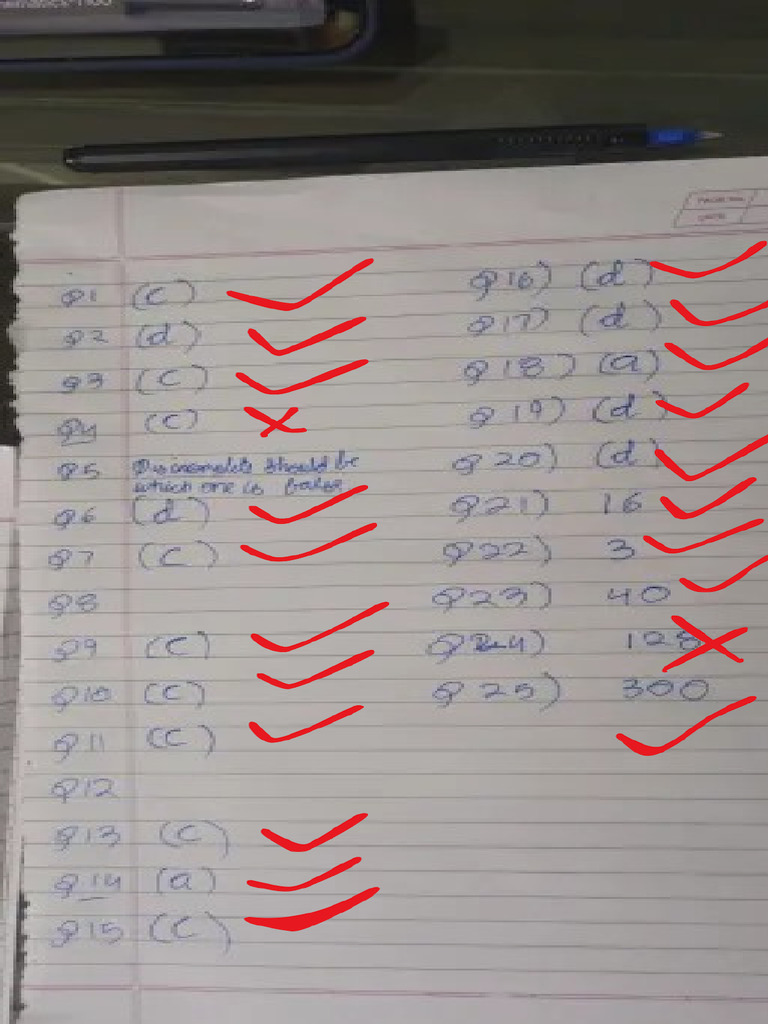 Q1 (c)
Q2 (d)
Q3 (c)
Q4 (c)
Q5 should be
which one is
Q6 (d)
Q7 (c)
Q8
Q9 (c)
Q10 (c)
Q11 (c)
Q12
Q13 (c)
Q14 (a)
Q15 (c)
Q16) (d)
Q17) (d)
Q18) (a)
Q19) (d)
Q20) (d)
Q21) 16
Q22) 3
Q23) 40
Q24) 128
Q25) 300
PAGE NO.
DATE